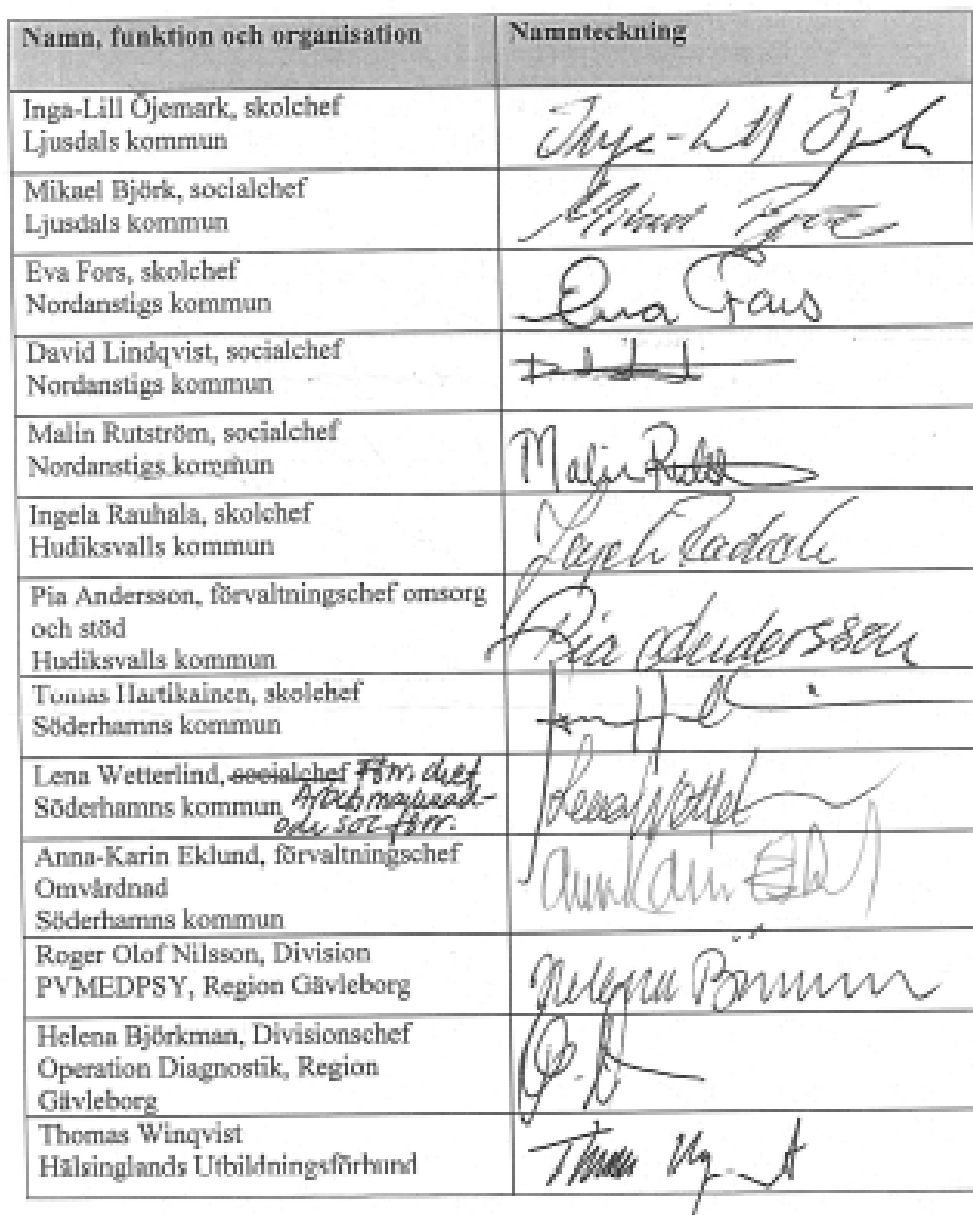 Namn, funktion och organisation Namnteckning
Inga-Lill Öjemark, skolchef
Ljusdals kommun
Inga-Lill Öj
Mikael Björk, socialchef
Ljusdals kommun
Mikael
Eva Fors, skolchef
Nordanstigs kommun
Eva Fors
David Lindqvist, socialchef
Nordanstigs kommun
Malin Rutström, socialchef
Nordanstigs kommun
Malin
Ingela Rauhala, skolchef
Hudiksvalls kommun
Pia Andersson, förvaltningschef omsorg
och stöd
Hudiksvalls kommun
Pia Andersson
Tomas Hartikainen, skolchef
Söderhamns kommun
Lena Wetterlind, socialchef Förv. chef
Söderhamns kommun Arbetsmarknad-
och soc. förv.
Lena
Anna-Karin Eklund, förvaltningschef
Omvårdnad
Söderhamns kommun
Roger Olof Nilsson, Division
PVMEDPSY, Region Gävleborg
Helena
Helena Björkman, Divisionschef
Operation Diagnostik, Region
Gävleborg
Thomas Winqvist
Hälsinglands Utbildningsförbund